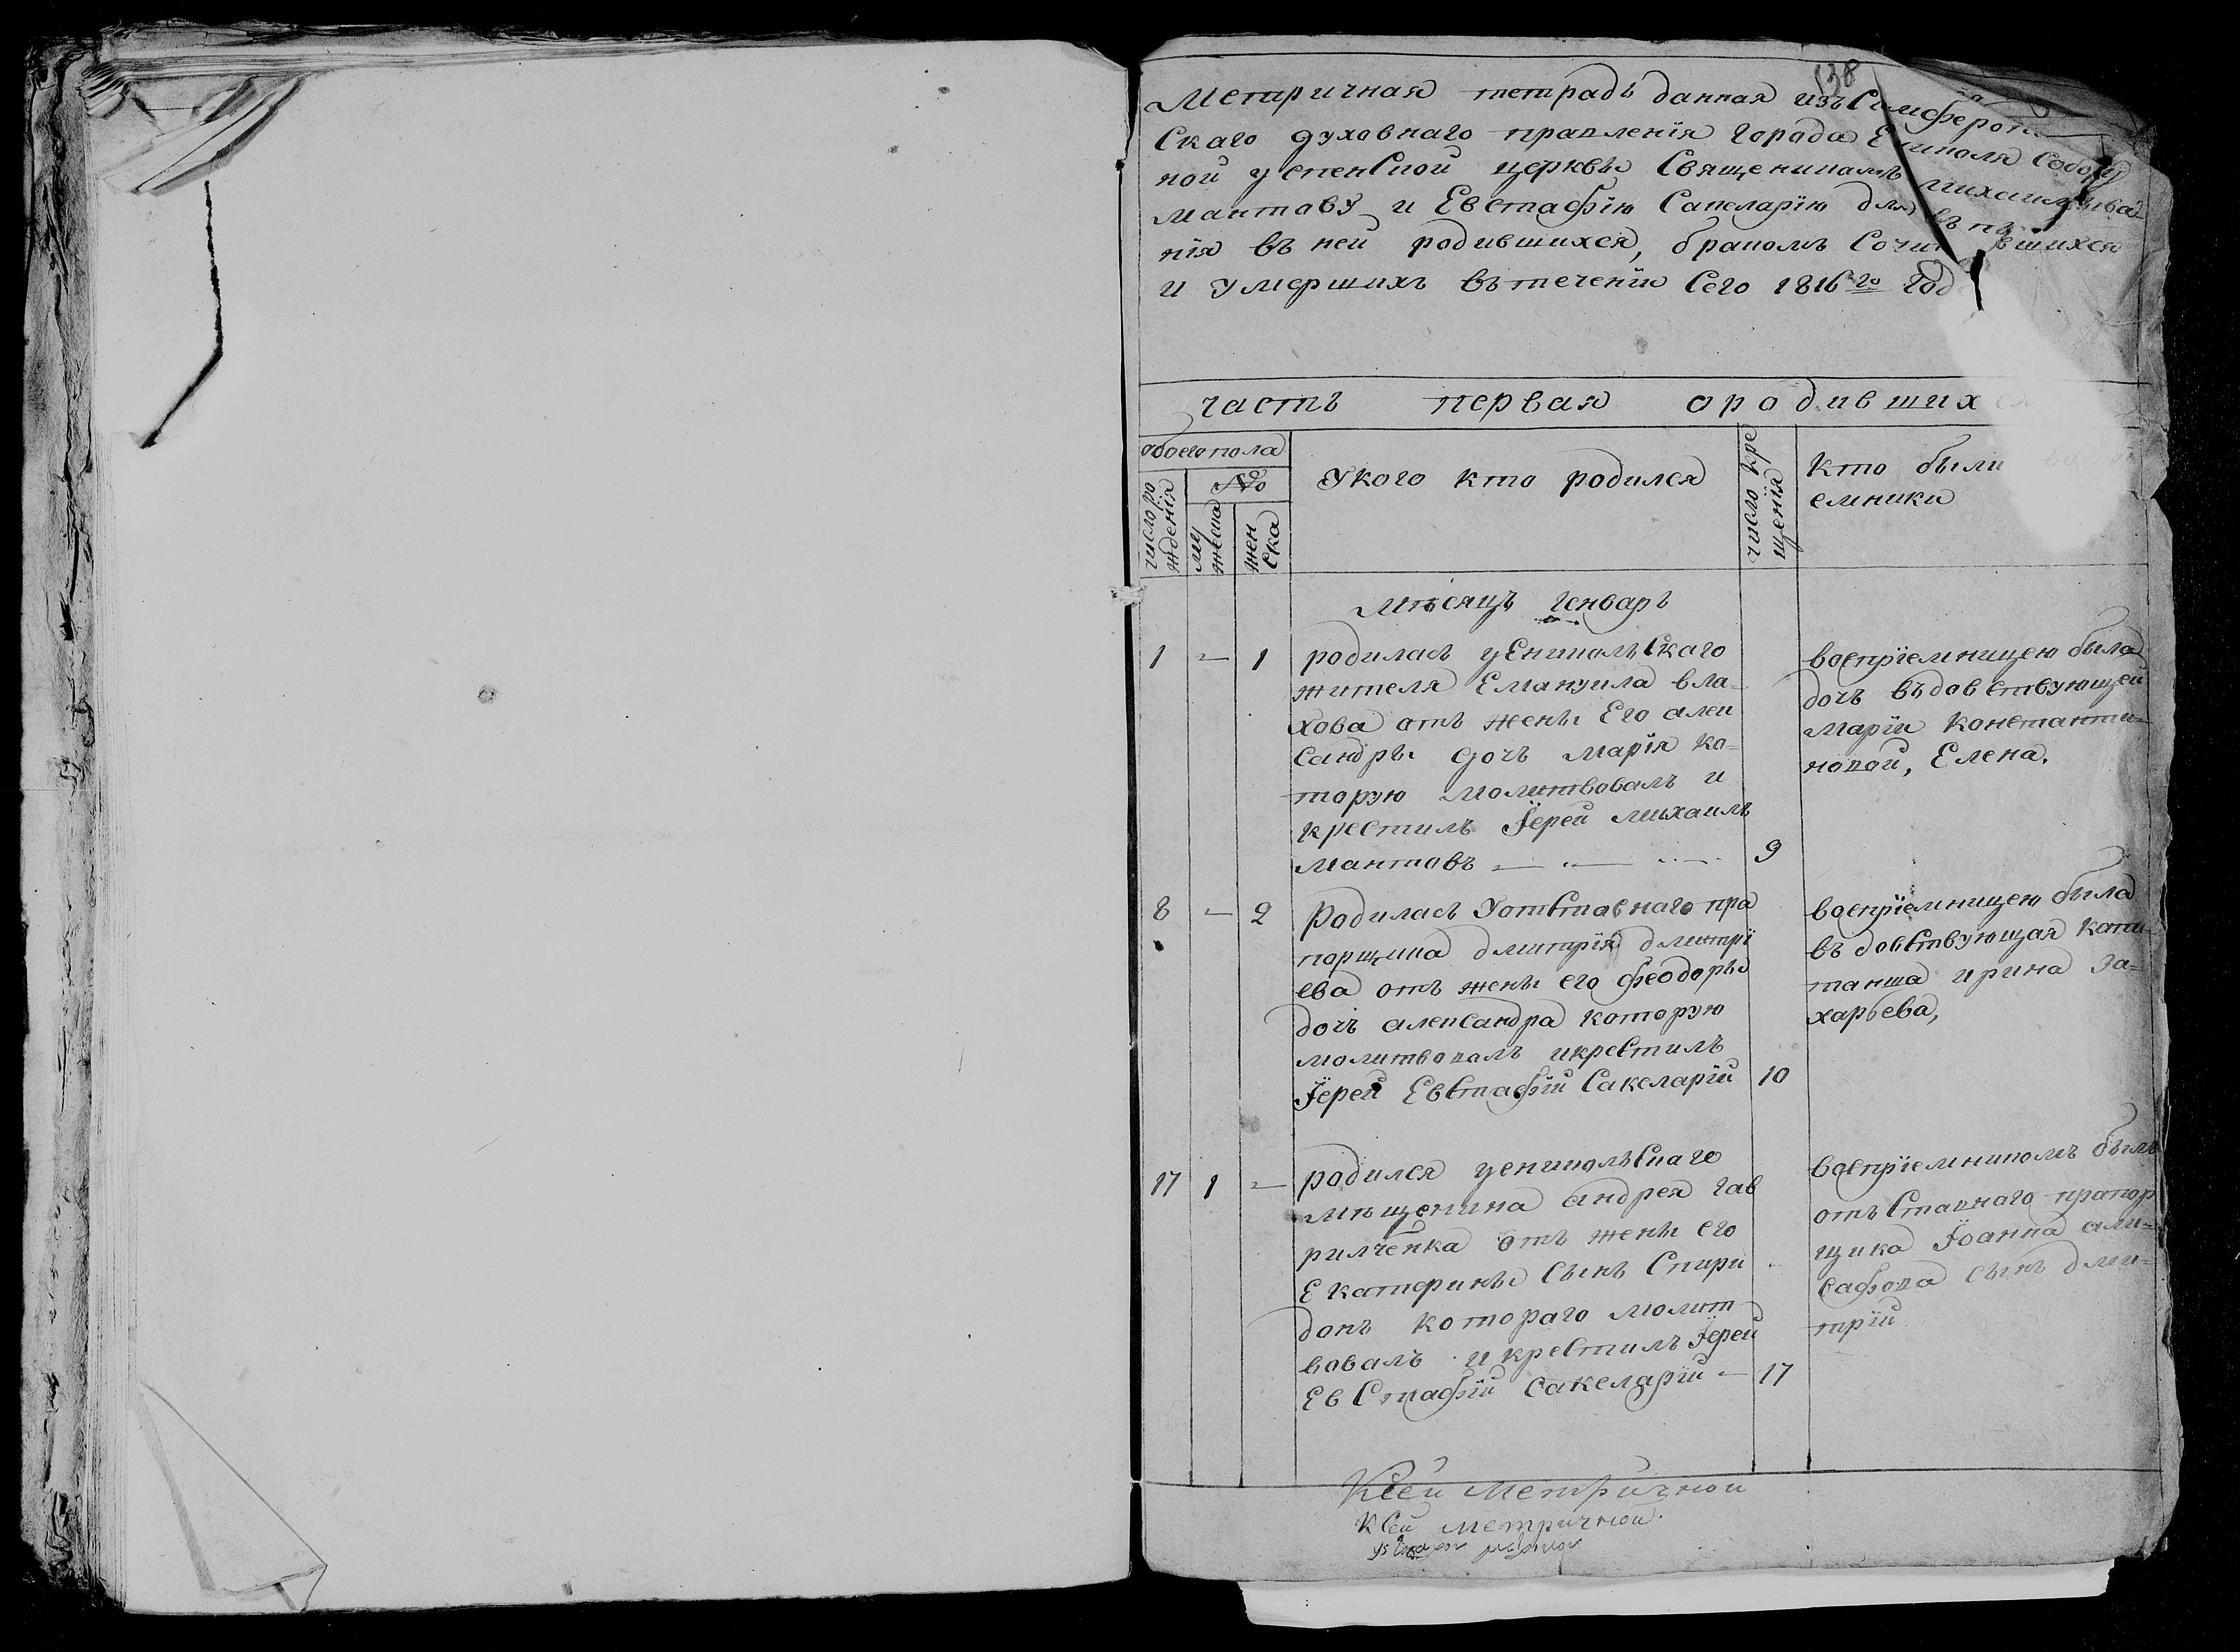 138
Метричная тетрадь данная изъ Симферопо
Скаго духовнаго правленія города Ениколя Собор
ной успенской церквы Священникамъ михаилу
мантову и Евстафію Сакеларію для
нія въ ней родившихся, бракомъ Сочи вшихся
и умершихъ въ теченіи Сего 1816го год
часть первая о родившихся
обоего пола
число ро
жденія
№
му
жеска
жен
ска
У кого кто родился
число кре
щенія
Кто были
емники
Мѣсяцъ генварь
1 — 1 родилась у Еникольскаго
жителя Емануила вла-
хова отъ жены Его алек
Сандры дочь марія ко=
торую молитвовалъ и
крестилъ Іерей михаилъ
мантовъ — — — 9
воспріемницею была
дочь въдовствующей
маріи константи=
новой, Елена.
8 — 2 Родилась У отставнаго пра
порщика дмитрія дмитрі
ева отъ жены его феодоры
дочь александра которую
молитвовалъ и крестилъ
Іерей Евстафій Сакеларій 10
воспріемницею была
въдовствующая капи-
танша ирина За=
харьева,
17 1 — родился у еникольскаго
мѣщенина андрея гав
рилченка отъ жены его
Екатерины сынъ Спири
донъ котораго молит
вовалъ и крестилъ Іерей
Евстафій Сакеларій — 17
воспріемникомъ былъ
отъставнаго прапор
щика Іоанна али=
сафова сынъ дми=
трій
К сей метричной
К сей метричной.